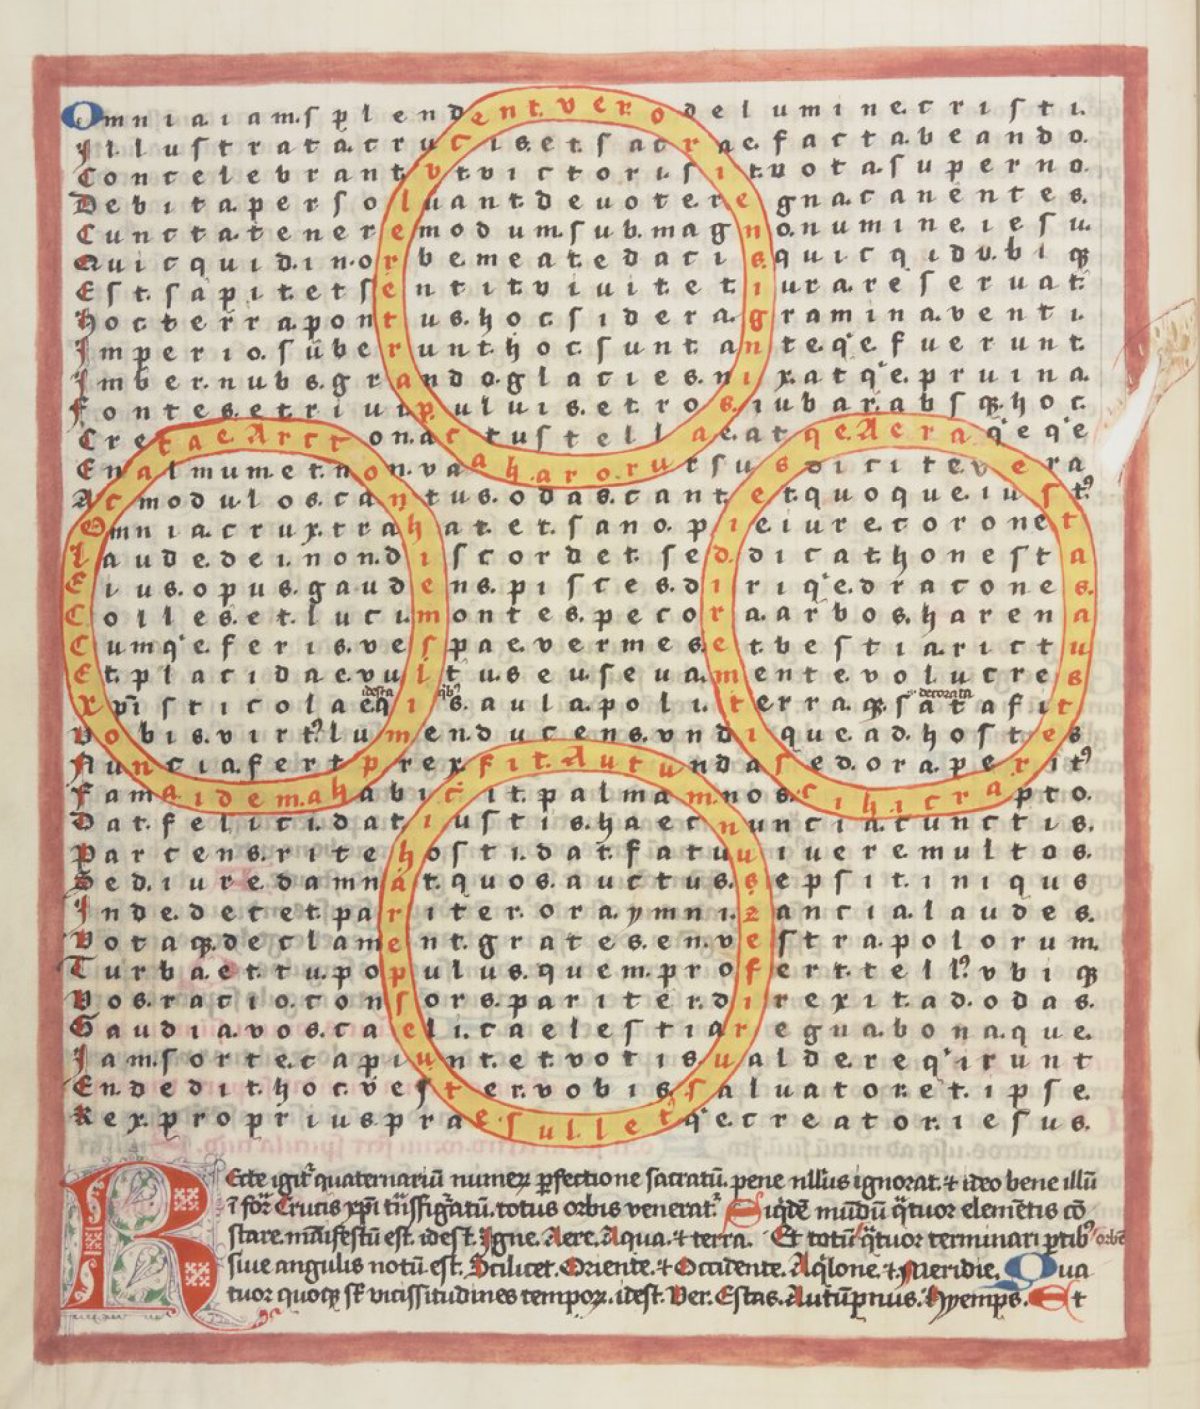 Omniaiam.splendent.verodelumine.cristi.
Illustrata.crucis.et.sacrae.factabeando.
Concelebrantvtvictori.sit.vota.superno.
Debita.persoluantdeuoteregna.canentes.
Cuncta.teneremodum.sub.magno.numine.iesu.
Quicquid.in.orbe.meatedacis.quicqiduv.biqꝫ
Est.sapit.etsentit.viuit.etiura.reseruat.
hoc.terra.pontus.hoc.sidera.gramina.venti.
Imperio.suberunt.hoc.sunt.anteqͤ.fuerunt.
Imber.nubs.grando.glacies.nix.atqͤ.pruina.
fontes.et.riuipuluis.et.ros.iubar.absqꝫ.hoc.
Cretae.Arctton.ac tustellae.atqe.Aeraqͤqͤ
Enalmumet.non.vaaharorurtsusdicitevera
Acmodulos.cantus.odas.cantetquoque.iust᾽
Omniacrux.trahat.et.sano.pieiure.corone
Laudedei.non.discordet.seddicathonesta
Eius.opus.gaudens.pisces.diriqͤ.dracones.
Colles.et.lucimontes.pecora.arbos.harena
Cumqͤ.feris.vespae.vermes.etbestia.rictu
Et.placidaevultuseuseua.mentevolucres
Xpisticolaeqis.aula.poli.terra.qꝫsatafit
idesta qib᾽ decorata
Vobis.virt᾽lumenducens.vndiquead.hostes
Nunciafertprexfit.Autundased.ora.perit᾽
famaidemahabicitpalmamnos.cihicrapto.
Dat.felicidatiustis.haecnuncia.cunctis.
Parcens.ritehosti.dat.fatuuiueremultos.
Sed.iure.damnat.quos.auctus.sepsit.iniqus
Inde.decet.pariter.ora.ymni.2ancia.laudes.
Votaqꝫ.declament.grates.en.vestra.polorum.
Turbaet.tu.populus.quem.profert.tell᾽vbiqꝫ
Vos.racio.consors.pariter.direxit.ad.odas.
Gaudia.vos.caeli.caelestiaregnabona.que.
Iam.sorte.capiunt.et.votisualdereqirunt
En.dedit.hoc.vestervobis.saluatoret.ipse.
Rex.propriuspraesulletqͤ.creator.iesus.
Recte igit᷑ quaternariū numeꝝ ꝑfectione sacratū. pene nllius ignorat. ⁊ ideo bene illū
ī for᷑ Crucis xp̄i tn̄sfigr̄atū. totus orbis venerat᷑. Siqͥdē mūdū qͣtuor elemētis cō
stare. māifestū est. idest. Igne. Aere. Aqua. ⁊ terra. Et totū qͣtuor terminari ꝑtib᾽ orbē
siue angulis notū est. Scilicet. Oriente. ⁊ Occidente. Aqͥlone. ⁊ Meridie. Qua
tuor quoqꝫ sꝭ vicissitudines tempoꝝ. idest. Ver. Estas. Autūpnus. hyemps. Et